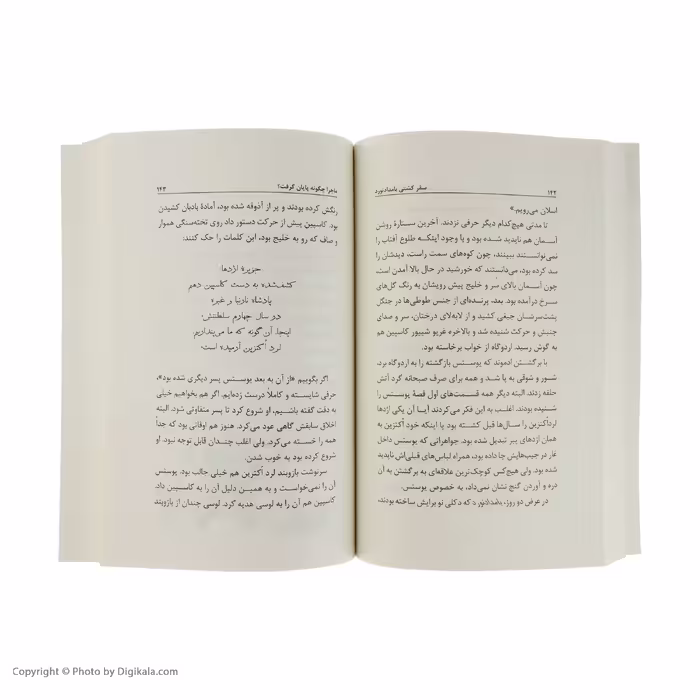 ۱۴۲ سفر کشتی بامدادنورد
اسلان می‌رویم.»
تا مدتی هیچ‌کدام دیگر حرفی نزدند. آخرین ستارهٔ روشن
آسمان هم ناپدید شده بود و با وجود اینکه طلوع آفتاب را
نمی‌توانستند ببینند، چون کوه‌های سمت راست، دیدشان را
سد کرده بود، می‌دانستند که خورشید در حال بالا آمدن است،
چون آسمان بالای سر و خلیج پیش رویشان به رنگ گل‌های
سرخ درآمده بود. بعد، پرنده‌ای از جنس طوطی‌ها در جنگل
پشت‌سرشان جیغی کشید و از لابه‌لای درختان، سر و صدای
جنبش و حرکت شنیده شد و بالاخره غریو شیپور کاسپین هم
به گوش رسید. اردوگاه از خواب برخاسته بود.
با برگشتن ادموند که یوستس بازگشته را به اردوگاه برد،
شور و شوقی به پا شد و همه برای صرف صبحانه گرد آتش
حلقه زدند. البته دیگر همه قسمت‌های اول قصهٔ یوستس را
شنیده بودند. اغلب به این فکر می‌کردند آیا آن یکی اژدها
لرد اُکتزین را سال‌ها قبل کشته بود یا اینکه خود اُکتزین به
همان اژدهای پیر تبدیل شده بود. جواهراتی که یوستس داخل
غار در جیب‌هایش جا داده بود، همراه لباس‌های قبلی‌اش ناپدید
شده بود. ولی هیچ‌کس کوچک‌ترین علاقه‌ای به برگشتن به آن
دره و آوردن گنج نشان نمی‌داد، به خصوص یوستس.
در عرض دو روز، بامدادنورد که دکلی نو برایش ساخته بودند،
ماجرا چگونه پایان گرفت! ۱۴۳
رنگش کرده بودند و پر از آذوقه شده بود، آمادهٔ بادبان کشیدن
بود. کاسپین پیش از حرکت دستور داد روی تخته‌سنگی هموار
و صاف که رو به خلیج بود، این کلمات را حک کنند:
جزیرهٔ اژدها
کشف‌شده به دست کاسپین دهم
پادشاه نارنیا و غیره
در سال چهارم سلطنتش.
اینجا، آن گونه که ما می‌پنداریم
لرد اُکتزین آرمیده است.
اگر بگوییم «از آن به بعد یوستس پسر دیگری شده بود»،
حرفی شایسته و کاملاً درست زده‌ایم. اگر هم بخواهیم خیلی
به دقت گفته باشیم، او شروع کرد تا پسر متفاوتی شود. البته
اخلاق سابقش گاهی عود می‌کرد. هنوز هم اوقاتی بود که جداً
همه را خسته می‌کرد. ولی اغلب چندان قابل توجه نبود. او
شروع کرده بود به خوب شدن.
سرنوشت بازوبند لرد اُکتزین هم خیلی جالب بود. یوستس
آن را نمی‌خواست و به همین دلیل آن را به کاسپین داد.
کاسپین هم آن را به لوسی هدیه کرد. لوسی چندان از بازوبند
Copyright © Photo by Digikala.com